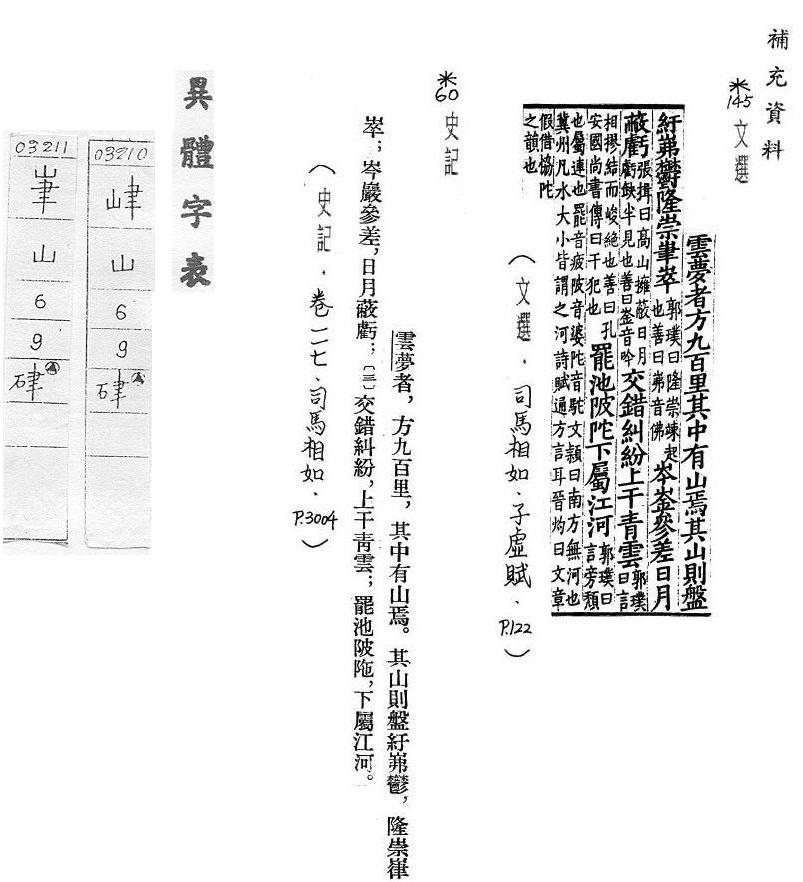 補充資料
*145 文選
雲夢者方九百里其中有山焉其山則盤
紆岪鬱隆崇嵂崒 郭璞曰隆崇竦起也善曰岪音佛 岑崟參差日月
蔽虧 張揖曰高山擁蔽日月虧缺半見也善曰崟音吟 交錯糾紛上干青雲 郭璞曰言
相摎結而峻絕也善曰孔安國尚書傳曰干犯也 罷池陂陀下屬江河 郭璞曰言旁穨
也屬連也罷音疲陂音婆陀音駝文穎曰南方無河也
冀州凡水大小皆謂之河詩賦通方言耳晉灼曰文章
假借協陀之韻也
(文選.司馬相如.子虛賦.P.122)
*60 史記
雲夢者,方九百里,其中有山焉。其山則盤紆岪鬱,隆崇嵂
崒;岑巖參差,日月蔽虧;〔三〕交錯糾紛,上干青雲;罷池陂陁,下屬江河。
(史記.卷一一七.司馬相如.P.3004)
異體字表
03210
山
6
9
硉
03211
山
6
9
硉